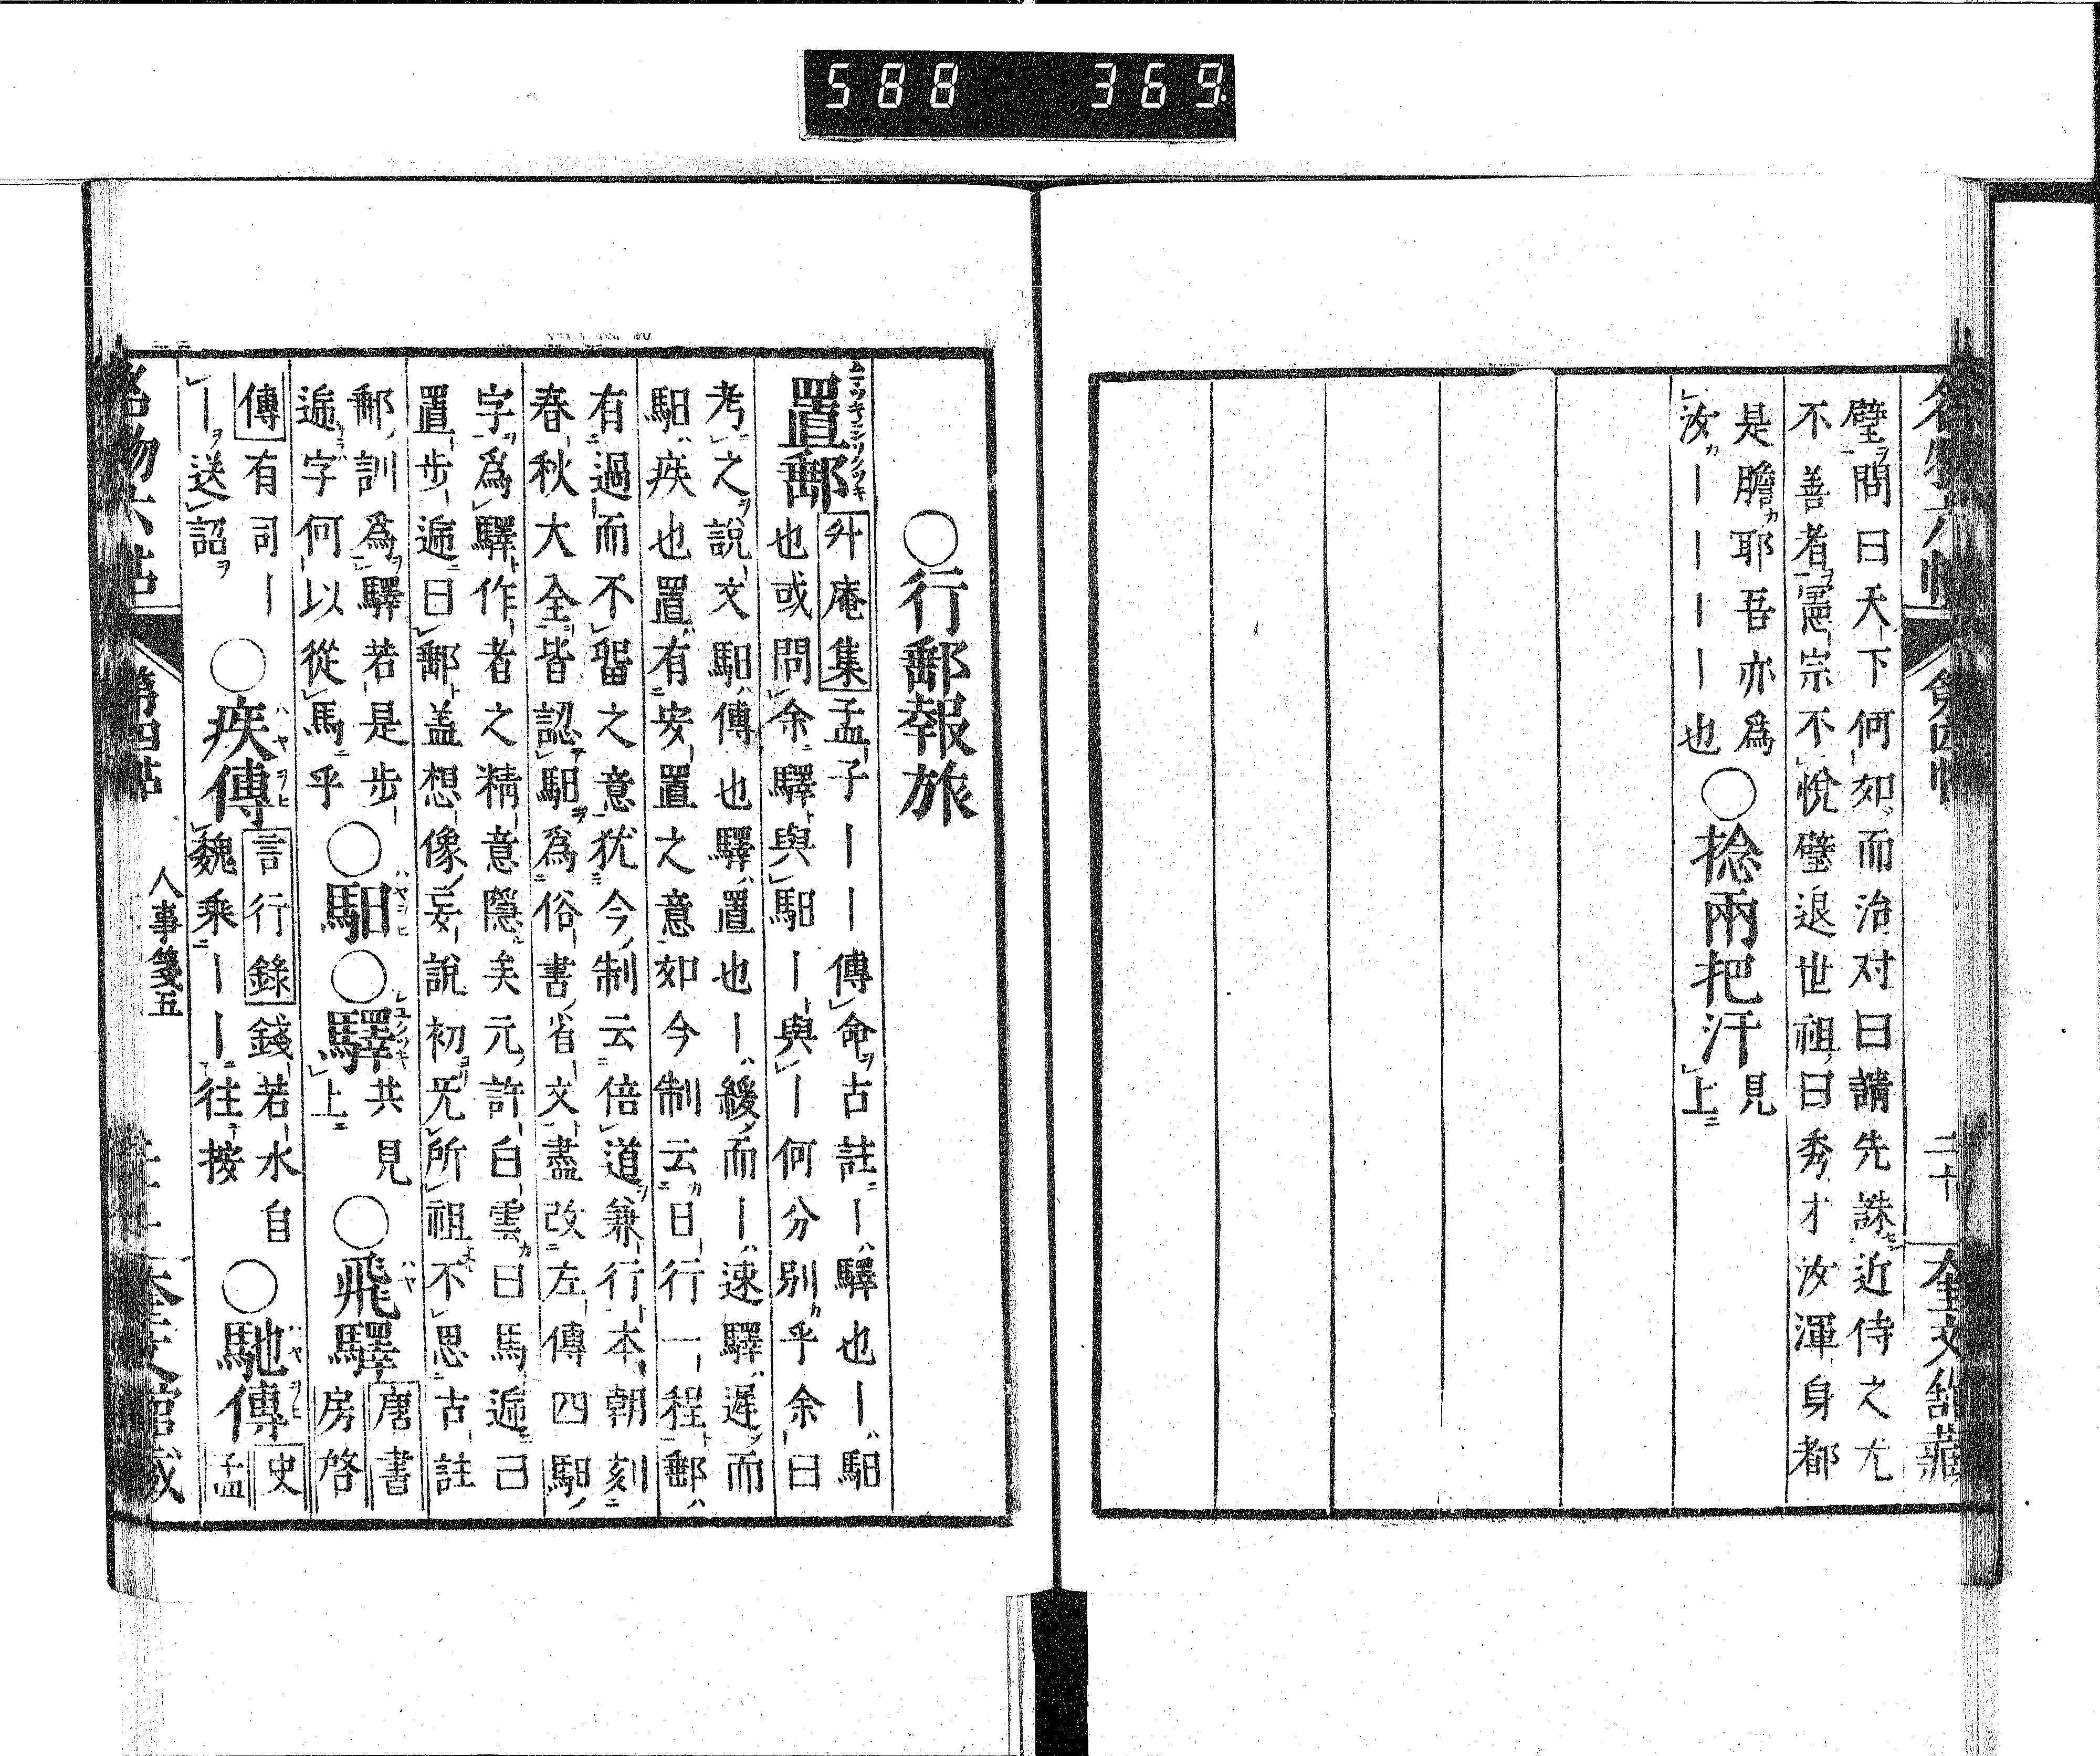 588 369.
名物六帖 第四帖 二十 奎文館蔵
璧問曰天下何如而治对曰請先誅近侍之尤
不善者憲宗不悅璧退世祖曰秀才汝渾身都
是膽耶吾亦爲
汝丨丨丨丨也
○捻兩把汗
見
上
○行郵報旅
置郵
升庵集孟子丨丨丨傳命古註丨驛也丨馹
也或問余驛與馹丨與丨何分別乎余曰
考之說文馹傅也驛置也丨緩而丨速驛遲而
馹疾也置有安置之意如今制云日行一程郵
有過而不畱之意犹今制云倍道兼行本朝刻
春秋大全皆認馹爲俗書省文盡改左傳四馹
字爲驛作者之精意隱矣元許白雲曰馬遞曰
置步遞曰郵盖想像妄說初无所祖不思古註
郵訓爲驛若是步
遞字何以從馬乎
○馹
○驛
共見
上
○飛驛
唐書
房啓
傳有司丨
丨送詔
○疾傳
言行錄錢若水自
魏乘丨丨往按
○馳傳
史
孟
名物六帖 第四帖 人事箋五 奎文館蔵